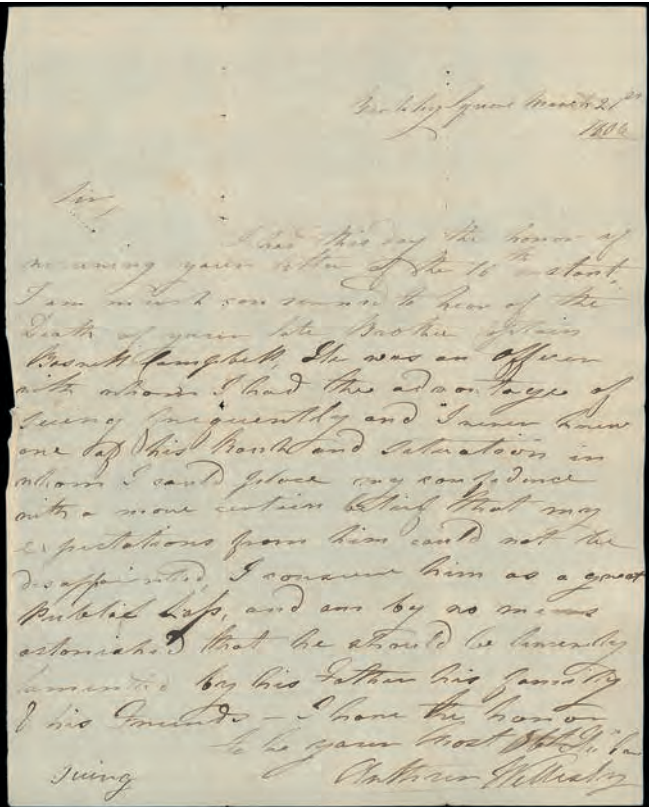 Berkeley Square March 21st
1806
Sir,
I had this day the honor of
receiving your letter of the 16th instant,
I am much concerned to hear of the
Death of your late Brother Captain
Campbell, He was an Officer
with whom I had the advantage of
seeing frequently and I never knew
one of his Rank and Situation in
whom I could place my confidence
with a more certain belief that my
expectations from him could not be
disappointed, I conceive him as a great
Public Loss, and am by no means
astonished that he should be sincerely
lamented by his Father his family
& his Friends – I have the honor
to be your most Obt
Arthur Wellesley